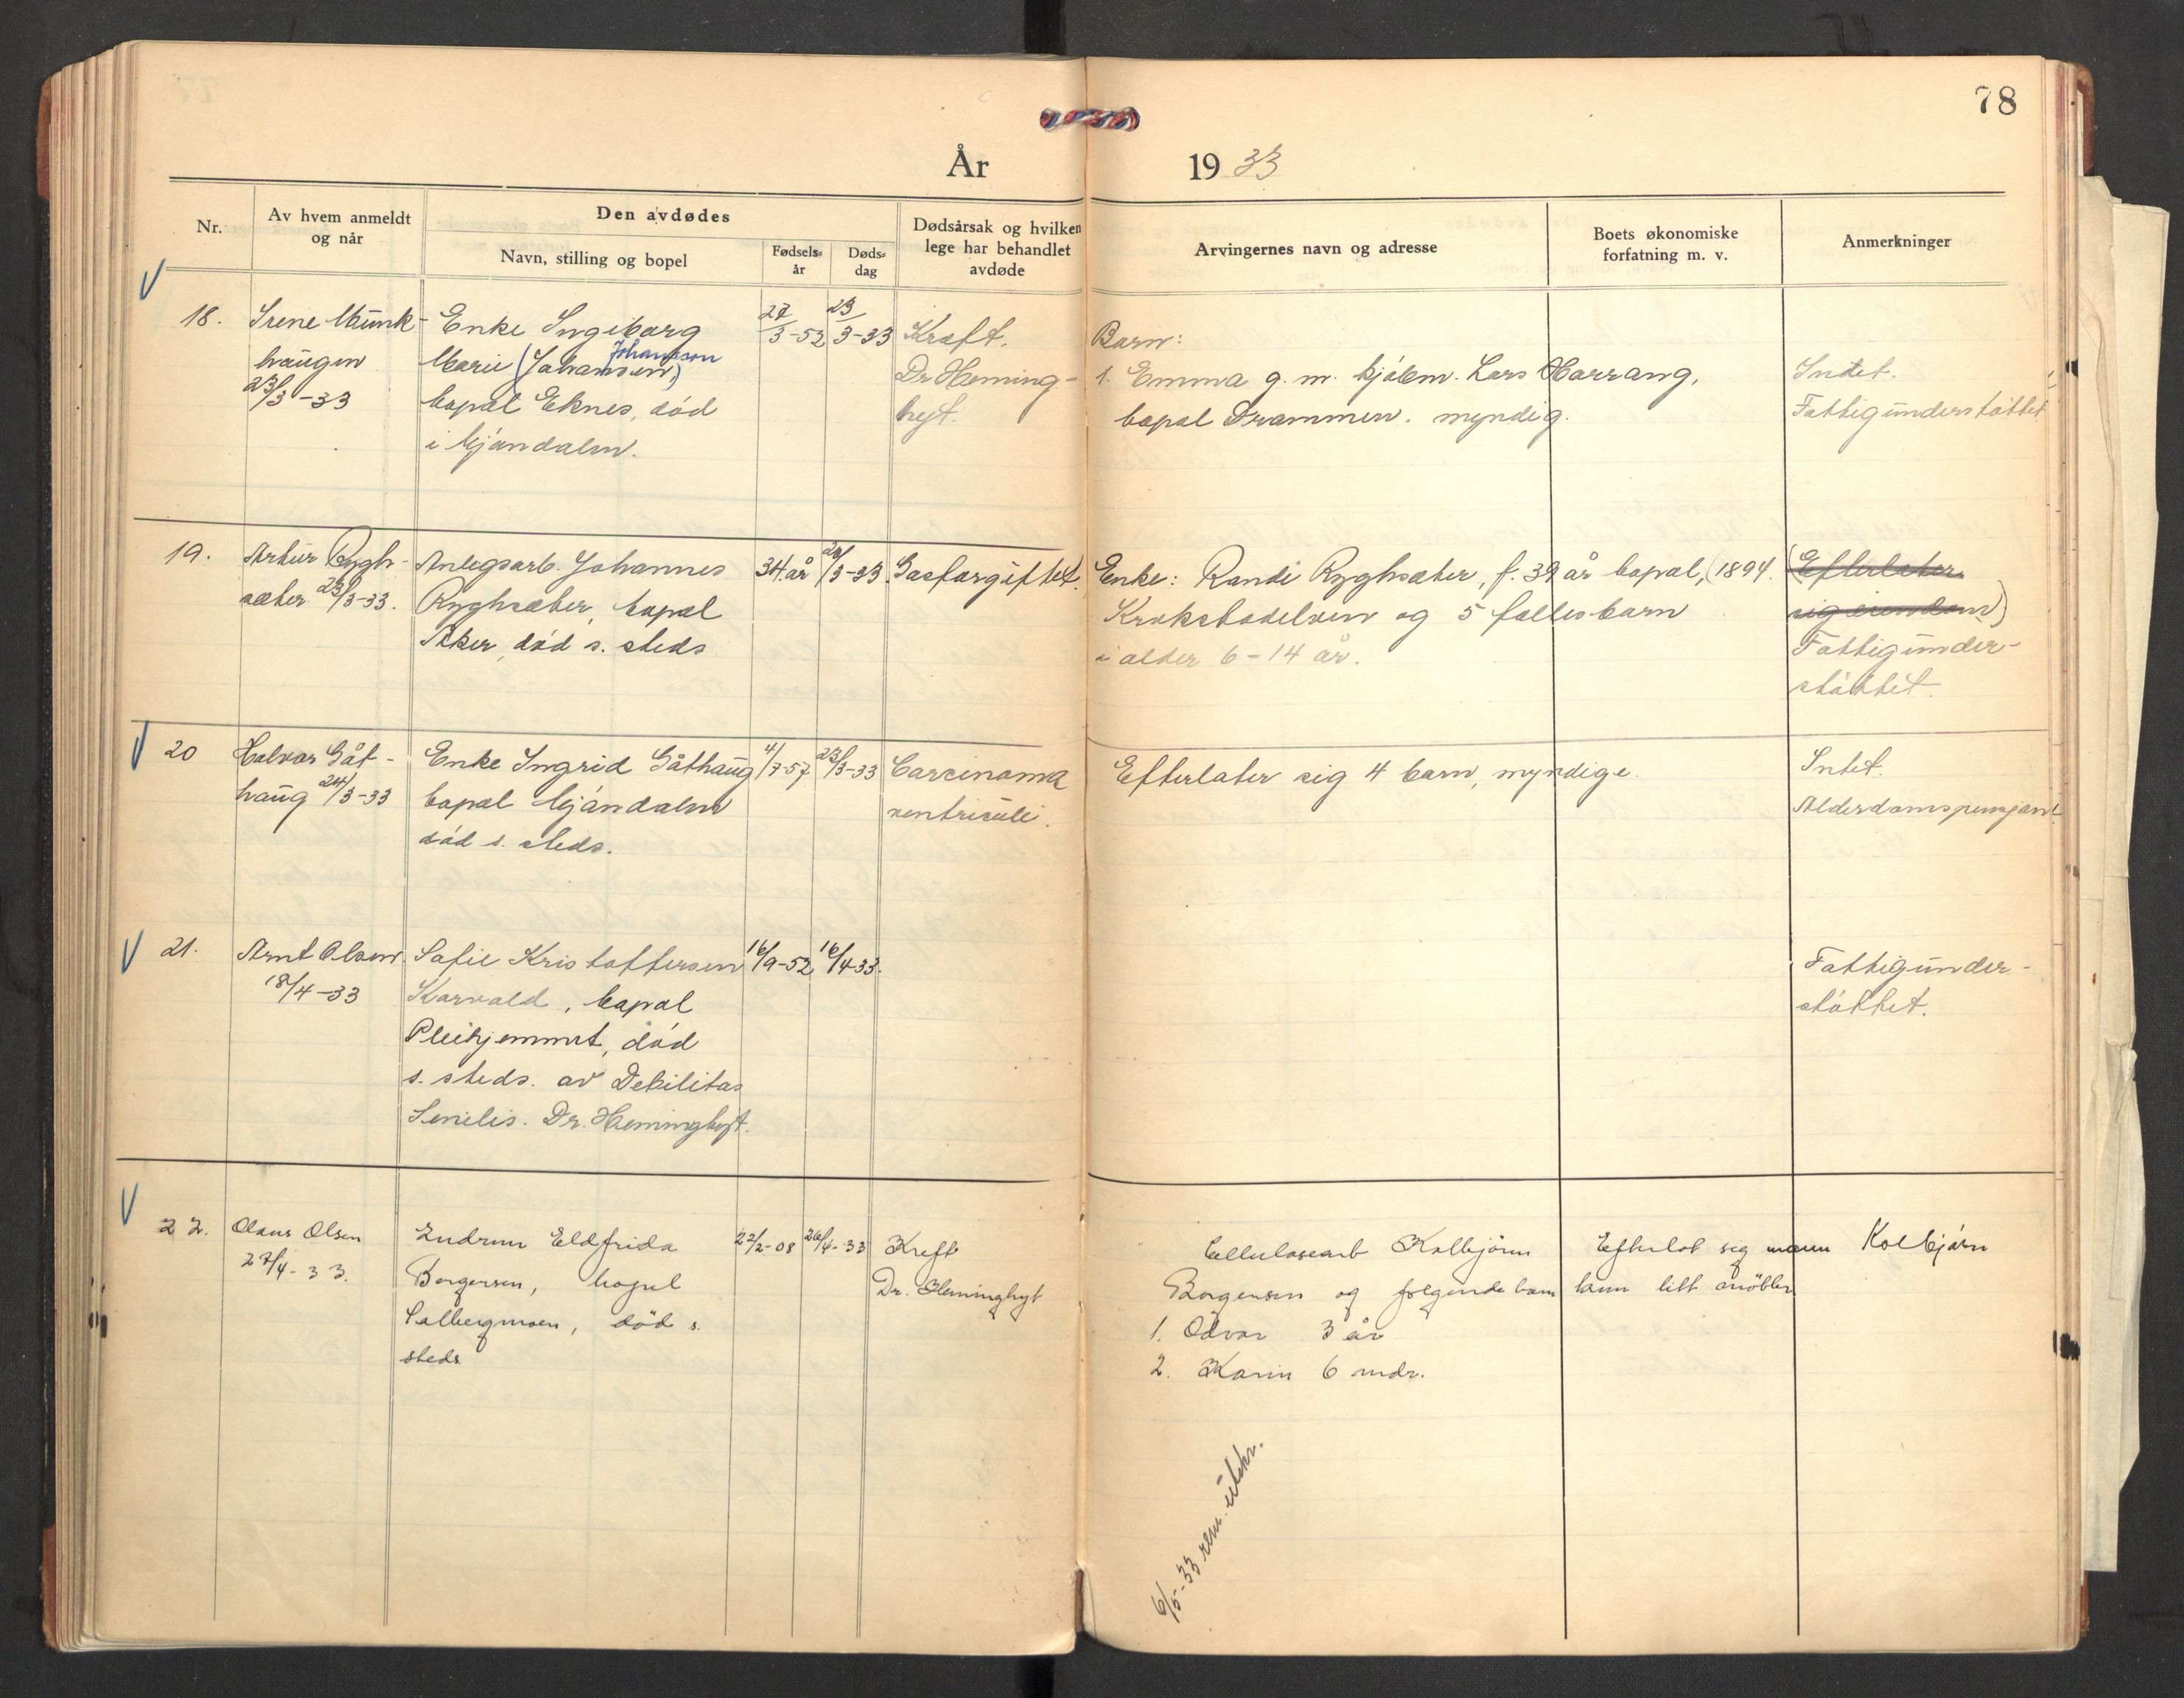 78
År 1933
Nr.
Av hvem anmeldt
og når
Den avdødes
Navn, stilling og bopel
Fødsels-
år
Døds-
dag
Dødsårsak og hvilken
lege har behandlet
avdøde
Arvingernes navn og adresse
Boets økonomiske
forfatning m. v.
Anmerkninger
18.
Irene Munk-
haugen
23/3-33
Enke Ingiborg
Marie (Johansen)
Johansson
bopæl Eknes, död
i Mjöndalen.
27/3-52
23/3-33
Kræft.
Dr Heming-
hyt.
Barn:
1. Emma g. m. kjölem. Lars Harrang,
bopæl Drammen. myndig.
Intet.
Fattigunderstöttet
19.
Artur Rygh-
sæter 25/3-33.
Anlegsarb. Johannes
Ryghsæter, bopæl
Aker, död s. steds
34 år
20/3-33
Gasforgiftet.
Enke: Randi Ryghsæter, f. 39 år bopæl, (1894.
Krokstadelven og 5 fællesbarn
i alder 6-14 år.
(Efterlater
sig eiendom)
Fattigunder-
stöttet.
20
Halvor Gåt-
haug 24/3-33
Enke Ingrid Gåthaug
bopæl Mjöndalen
död s. steds.
4/7-57
23/3-33
Carcinoma
ventriculi.
Efterlater sig 4 barn, myndige.
Intet.
Alderdomspensjont
21.
Arnt Olsen
18/4-33
Sofie Kristoffersen
Korvald, bopæl
Pleihjemmet, död
s. steds. av Debilitas
Senilis. Dr. Heminghyt.
16/9-52
16/4-33.
Fattigunder-
stöttet.
22.
Olaus Olsen
27/4-33.
Gudrun Eldfrida
Borgersen, bopel
Solbergmoen, död s.
steds
22/2-08
26/4-33
Kreft
Dr. Heminghyt
Cellulosearb Kolbjörn
Borgersen og følgende barn
1. Odvar 3 år
2. Karin 6 mdr.
Efterlot sig mann Kolbjörn
kun litt möbler
6/5-33 rem. utskr.